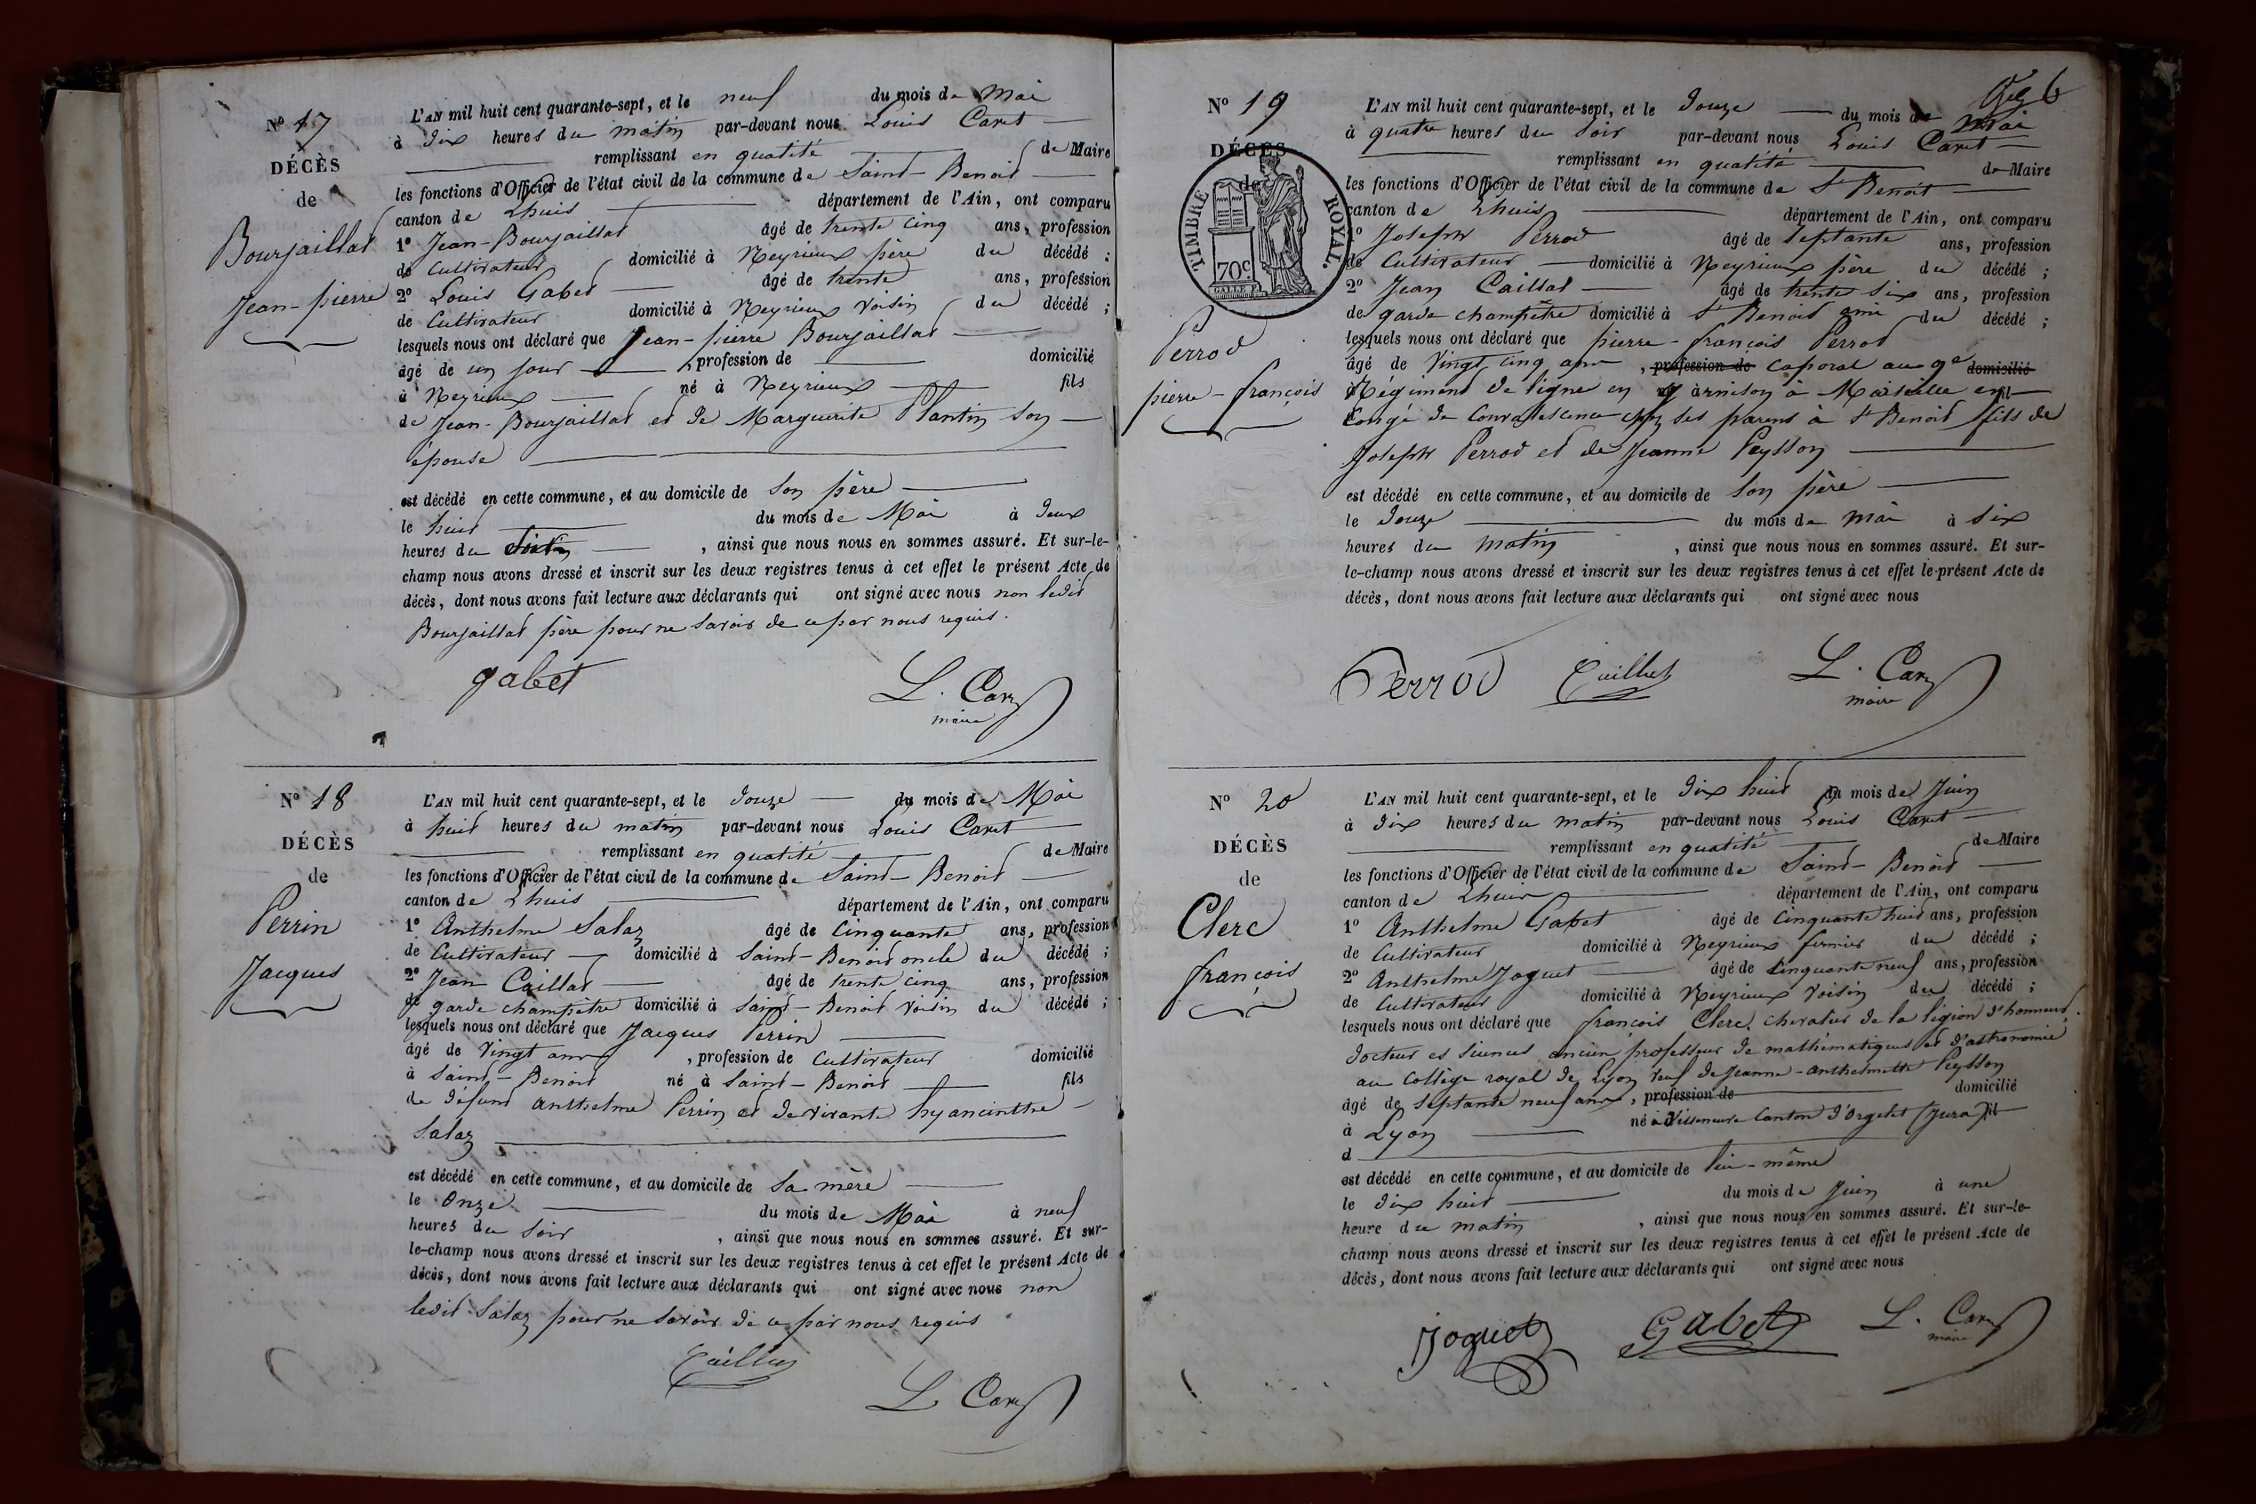 Nº 17
DÉCÈS
de
Bourjaillat
Jean-pierre
L'AN mil huit cent quarante-sept, et le neuf du mois de Mai
à dix heures du matin par-devant nous Louis Caret
remplissant en qualité de Maire
les fonctions d'Officier de l'état civil de la commune de Saint-Benoit
canton de Lhuis département de l'Ain, ont comparu
1º Jean-Bourjaillat âgé de trente cinq ans, profession
de Cultivateur domicilié à Neyrieux père du décédé ;
2º Louis Gabet âgé de trente ans, profession
de Cultivateur domicilié à Neyrieux voisin du décédé ;
lesquels nous ont déclaré que Jean-pierre Bourjaillat
âgé de un jour , profession de domicilié
à Neyrieux né à Neyrieux fils
de Jean-Bourjaillat et de Marguerite Plantin son
épouse
est décédé en cette commune, et au domicile de son père
le huit du mois de Mai à deux
heures du , ainsi que nous nous en sommes assuré. Et sur-le-
champ nous avons dressé et inscrit sur les deux registres tenus à cet effet le présent Acte de
décès, dont nous avons fait lecture aux déclarants qui ont signé avec nous non ledit
Bourjaillat père pour ne savoir de ce par nous requis.
gabet L. Caret
maire
Nº 18
DÉCÈS
de
Perrin
Jacques
L'AN mil huit cent quarante-sept, et le douze du mois de Mai
à huit heures du matin par-devant nous Louis Caret
remplissant en qualité de Maire
les fonctions d'Officier de l'état civil de la commune de Saint-Benoit
canton de Lhuis département de l'Ain, ont comparu
1º Anthelme Salaz âgé de Cinquante ans, profession
de Cultivateur domicilié à Saint-Benoit oncle du décédé ;
2º Jean Caillat âgé de trente cinq ans, profession
de garde champêtre domicilié à Saint-Benoit voisin du décédé ;
lesquels nous ont déclaré que Jacques Perrin
âgé de vingt ans , profession de Cultivateur domicilié
à Saint-Benoit né à Saint-Benoit fils
de défunt anthelme Perrin et de vivante hyancinthe
Salaz
est décédé en cette commune, et au domicile de Sa mère
le Onze du mois de Mai à neuf
heures du soir , ainsi que nous nous en sommes assuré. Et sur-
le-champ nous avons dressé et inscrit sur les deux registres tenus à cet effet le présent Acte de
décès, dont nous avons fait lecture aux déclarants qui ont signé avec nous non
ledit Salaz pour ne savoir de ce par nous requis
Caillat
L. Caret
6
Nº 19
DÉCÈS
de
TIMBRE ROYAL.
70c
Perrod
pierre-françois
L'AN mil huit cent quarante-sept, et le douze du mois de Mai
à quatre heures du soir par-devant nous Louis Caret
remplissant en qualité de Maire
les fonctions d'Officier de l'état civil de la commune de St Benoit
canton de Lhuis département de l'Ain, ont comparu
1º Joseph Perrod âgé de septante ans, profession
de Cultivateur domicilié à Neyrieux père du décédé ;
2º Jean Caillat âgé de trente six ans, profession
de garde champêtre domicilié à St Benoit ami du décédé ;
lesquels nous ont déclaré que pierre-françois Perrod
âgé de Vingt cinq ans , profession de caporal au 9e domicilié
Régiment de ligne en garnison à en
Congé de Convalescence chez ses parens à St Benoit fils de
Joseph Perrod et de Jeanne Peysson
est décédé en cette commune, et au domicile de Son père
le douze du mois de mai à six
heures du matin , ainsi que nous nous en sommes assuré. Et sur-
le-champ nous avons dressé et inscrit sur les deux registres tenus à cet effet le présent Acte de
décès, dont nous avons fait lecture aux déclarants qui ont signé avec nous
Perrod Caillat L. Caret
maire
Nº 20
DÉCÈS
de
Clerc
françois
L'AN mil huit cent quarante-sept, et le dix huit du mois de Juin
à dix heures du matin par-devant nous Louis Caret
remplissant en qualité de Maire
les fonctions d'Officier de l'état civil de la commune de Saint-Benoit
canton de Lhuis département de l'Ain, ont comparu
1º Anthelme Gabet âgé de Cinquante huit ans, profession
de Cultivateur domicilié à Neyrieux fermier du décédé ;
2º Anthelme Joguet âgé de Cinquante neuf ans, profession
de Cultivateur domicilié à Neyrieux voisin du décédé ;
lesquels nous ont déclaré que françois Clerc, chevalier de la légion d'honneur,
docteur es siences ancien professeur de mathématiques et d'astronomie
au Collège royal de Lyon veuf de Jeanne-anthelmette Peysson
âgé de Septante neuf ans , profession de domicilié
à Lyon né à Canton d'Orgelet (Jura) fils
d
est décédé en cette commune, et au domicile de lui-même
le dix huit du mois de Juin à une
heure du matin , ainsi que nous nous en sommes assuré. Et sur-le-
champ nous avons dressé et inscrit sur les deux registres tenus à cet effet le présent Acte de
décès, dont nous avons fait lecture aux déclarants qui ont signé avec nous
Joguet Gabet L. Caret
maire